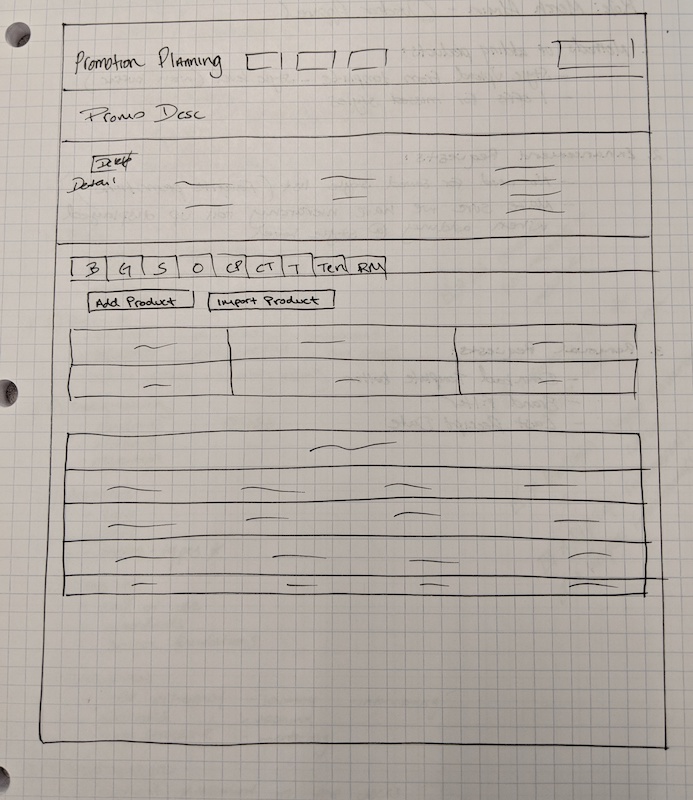 Promotion Planning
Promo Desc
Detail
B G S O CP CT T Ten RM
Add Product Import Product